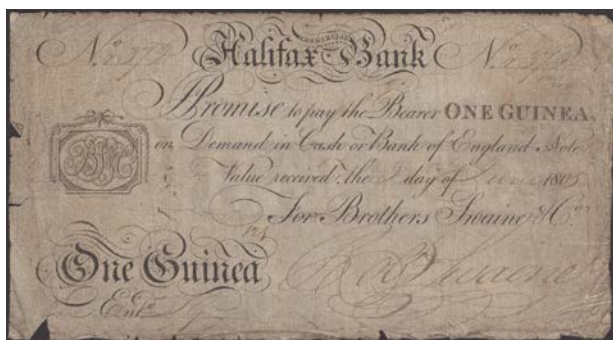 No Halifax Bank No
I Promise to pay the Bearer ONE GUINEA
on Demand in Cash or Bank of England Note
Value received the day of June 1805
For Brothers Swaine & Co.
One Guinea
Entd